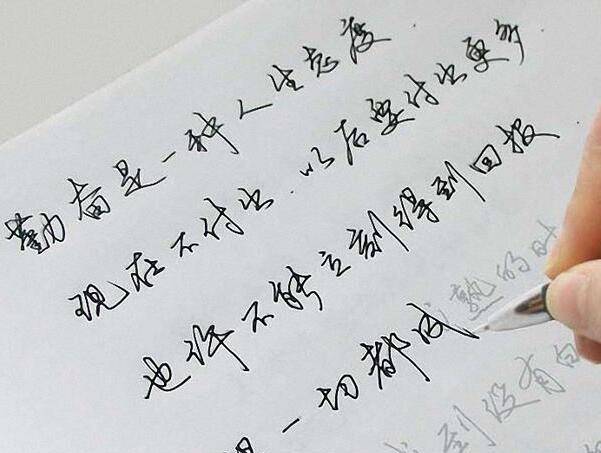 勤奋是一种人生态度.
现在不付出.以后要付出更多
也许不能立刻得到回报
一切都成熟的时
到没有白